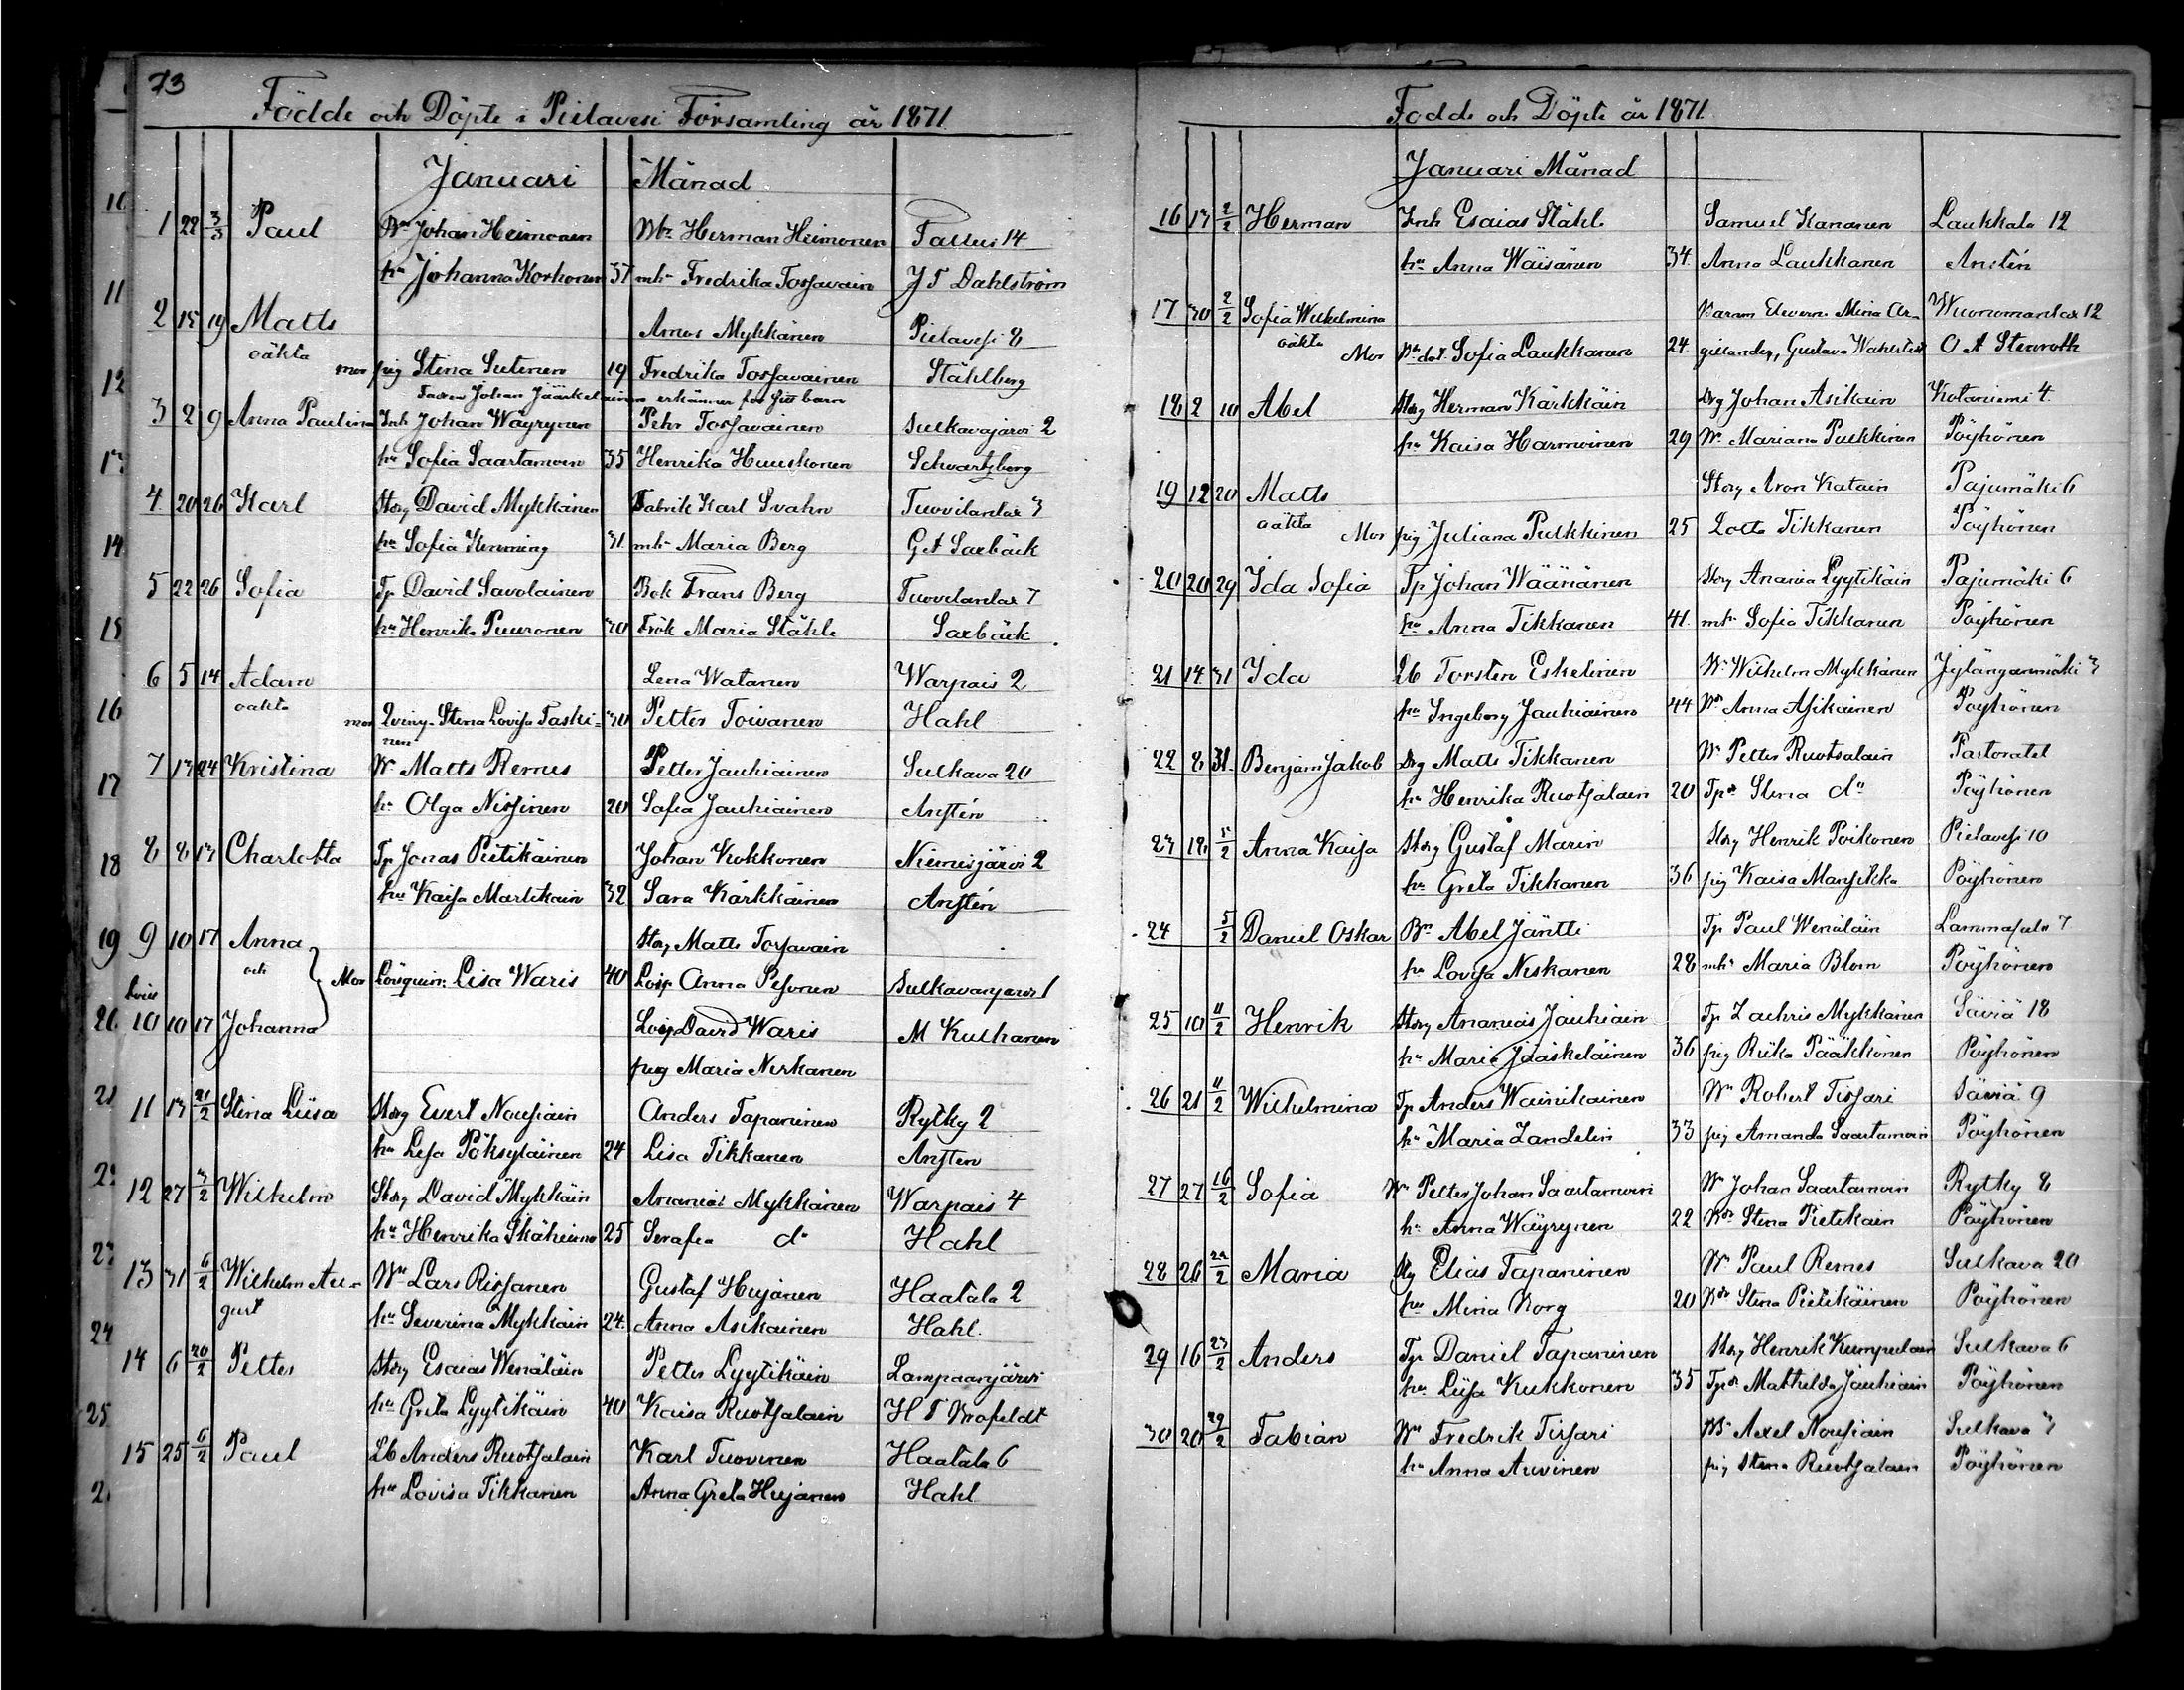 73
Födde och Döpte i Pielavesi Församling år 1871.
Januari Månad
1 22 3/3 Paul Bn Johan Heimonen Mbr Herman Heimonen Tallus 14
hu Johanna Korhonen 37 mhu Fredrika Torfvainen J T Dahlström
2 15 19 Matts Amos Mykkänen Pielavesi 8
oäkta mor pig Stina Sutinen 19 Fredrika Torfvainen Ståhlberg
Fadren Johan Jääskeläinen erkänner för sitt barn
3 2 9 Anna Paulina Inh Johan Wäyrynen Pehr Torfvainen Sulkavajärvi 2
hu Sofia Saastamoin 35 Henrika Huuskonen Schvartzberg
4 20 26 Karl Storp David Mykkänen Fabrik Karl Svahn Tuovilanlax 3
hu Sofia Kemming 31 mhu Maria Berg G A Saxbäck
5 22 26 Sofia Tp David Savolainen Bok Frans Berg Tuovilanlax 7
hu Henrika Puuronen 30 Frök Maria Ståhle Saxbäck
6 5 14 Adam Lena Watanen Warpais 2
oäkta mor Qving. Stina Lovisa Taski= 30 Petter Toivanen Hahl
nen
7 13 24 Kristina Wn Matts Remes Petter Jauhiainen Sulkava 20
hu Olga Nissinen 20 Sofia Jauhiainen Anstén
8 8 13 Charlotta Tp Jonas Pietikäinen Johan Kokkonen Niemisjärvi 2
hu Kaisa Martikain 32 Sara Kärkkäinen Anstén
9 10 17 Anna Storp Matts Torfvain
och Mor Lösqvin. Lisa Waris 40 Losp Anna Pesonen Sulkavanjärvi 1
10 10 17 Johanna Losp David Waris M Kulhanen
pig Maria Niskanen
11 13 21/2 Stina Liisa Storp Evert Nousiain Anders Tapaninen Rytky 2
hu Lisa Pöksyläinen 24 Lisa Tikkanen Ansten
12 27 3/2 Wilhelm Storp David Mykkäin Ananias Mykkänen Warpais 4
hu Henrika Ikäheimo 25 Serafia do Hahl
13 31 6/2 Wilhelm Au=
gust Wn Lars Rissanen Gustaf Hujanen Haatala 2
hu Severina Mykkäin 24 Anna Asikainen Hahl.
14 6 20/2 Petter Storp Esaias Wenäläin Petter Lyytikäin Lampaanjärvi
hu Greta Lyytikäin 40 Kaisa Ruotsalain H T Brofeldt
15 25 6/2 Paul Lb Anders Ruotsalain Karl Tuovinen Haatala 6
hu Lovisa Tikkanen Anna Greta Hujanen Hahl
Födde och Döpte år 1871.
Januari Månad
16 13 2/2 Herman Inh Esaias Ståhl Samuel Kananen Laukkala 12
hu Anna Wäisänen 34 Anna Laukkanen Anstén
17 30 2/2 Sofia Wilhelmina Mina Wuonamanlax 12
oäkta Mor dot. Sofia Laukkanen 24 Gustava O A Stenroth
18 2 10 Abel Storp Herman Kärkkäin Drg Johan Asikain Kotaniemi 4
hu Kaisa Harmoinen 29 Wn Mariana Pulkkinen Pöyhönen
19 12 20 Matts Storp Aron Katain Pajumäki 6
oäkta Mor pig Juliana Pulkkinen 25 Lotta Tikkanen Pöyhönen
20 20 29 Ida Sofia Tp Johan Wäänänen Storp Ananias Lyytikäin Pajumäki 6
hu Anna Tikkanen 41 mhu Sofia Tikkanen Pöyhönen
21 14 31 Ida Lb Torsten Eskelinen Wn Wilhelm Mykkänen Jylängänmäki 3
hu Ingeborg Jauhiainen 44 Wdr Anna Asikainen Pöyhönen
22 8 31 Benjam Jakob Drg Matts Tikkanen Wn Petter Ruotsalain Pastoratet
hu Henrika Ruotsalain 20 Tpdr Stina do Pöyhönen
23 18 5/2 Anna Kaisa Storp Gustaf Marin Storp Henrik Poikonen Pielavesi 10
hu Greta Tikkanen 36 pig Kaisa Mansikka Pöyhönen
24 5/2 Daniel Oskar Bn Abel Jäntti Tp Paul Wenäläin Lammasalo 7
hu Lovisa Niskanen 28 mhu Maria Blom Pöyhönen
25 10 11/2 Henrik Storp Ananias Jauhiain Tp Zachris Mykkänen Säviä 18
hu Maria Jääskeläinen 36 pig Riika Pääkkönen Pöyhönen
26 21 11/2 Wilhelmina Tp Anders Wainikainen Wn Robert Tissari Säviä 9
hu Maria Zandelin 33 pig Amanda Saastamoin Pöyhönen
27 27 16/2 Sofia Wn Petter Johan Saastamoin Wn Johan Saastamoin Rytky 8
hu Anna Wäyrynen 22 Wdr Stina Pietikäin Pöyhönen
28 26 22/2 Maria Drg Elias Tapaninen Wn Paul Remes Sulkava 20
hu Mina Korg 20 Wdr Stina Pietikäinen Pöyhönen
29 16 23/2 Anders Tp Daniel Tapaninen Storp Henrik Kumpulain Sulkava 6
hu Liisa Kukkonen 35 Tpdr Mathilda Jauhiain Pöyhönen
30 20 29/2 Fabian Wn Fredrik Tissari Wn Axel Nousiain Sulkava 3
hu Anna Auvinen pig Stina Ruotsalain Pöyhönen